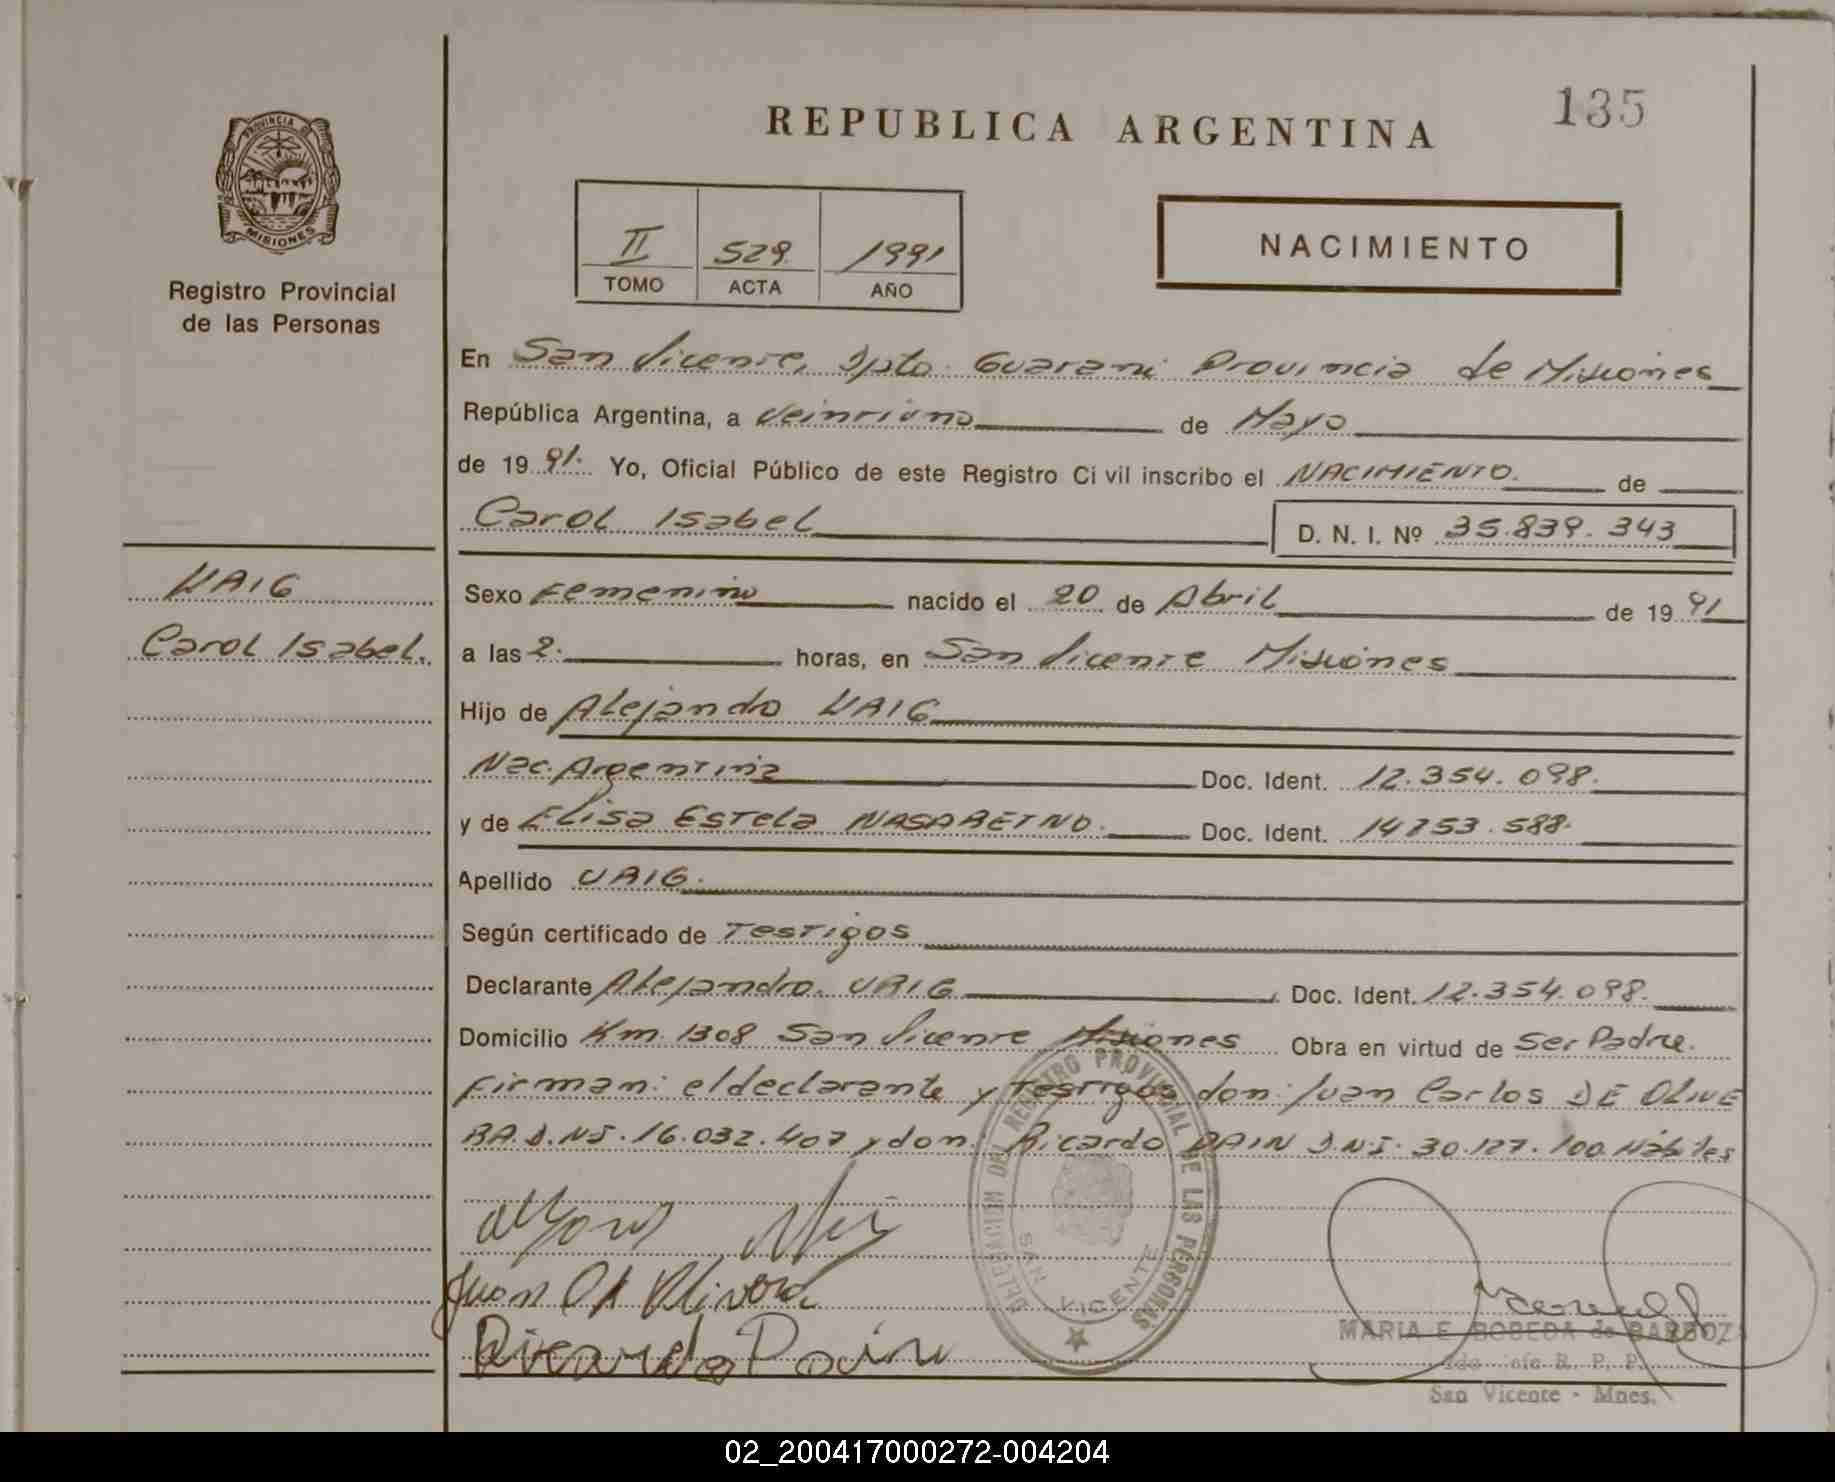 135
REPUBLICA ARGENTINA
PROVINCIA DE
MISIONES
Registro Provincial
de las Personas
II 529. 1991
TOMO ACTA AÑO
NACIMIENTO
En San Vicente, Dpto. Guarani Provincia de Misiones
República Argentina, a Veintiuno de Mayo
de 19 91. Yo, Oficial Público de este Registro Civil inscribo el NACIMIENTO. de
Carol Isabel D. N. I. Nº 35.839.343
UAIG
Carol Isabel.
Sexo Femenino nacido el 20 de Abril de 19 91
a las 2. horas, en San Vicente Misiones
Hijo de Alejandro UAIG
Nac. Argentina Doc. Ident. 12.354.098.
y de Elisa Estela Doc. Ident. 14753.588.
Apellido UAIG.
Según certificado de Testigos
Declarante Alejandro. UAIG Doc. Ident. 12.354.098.
Domicilio Km. 1308 San Vicente Misiones Obra en virtud de Ser Padre.
Firman: el declarante y Testigos don: Juan Carlos DE OLIVE
RA. D.N.I. 16.032.407 y don. Ricardo DAIN D.N.I. 30.127.100. Hábiles
Juan Olivera
Ricardo
DELEGACION DEL REGISTRO PROVINCIAL DE LAS PERSONAS
SAN VICENTE
MARIA E. BOBEDA de BARBOZA
R. P. P.
San Vicente - Mnes.
02_200417000272-004204